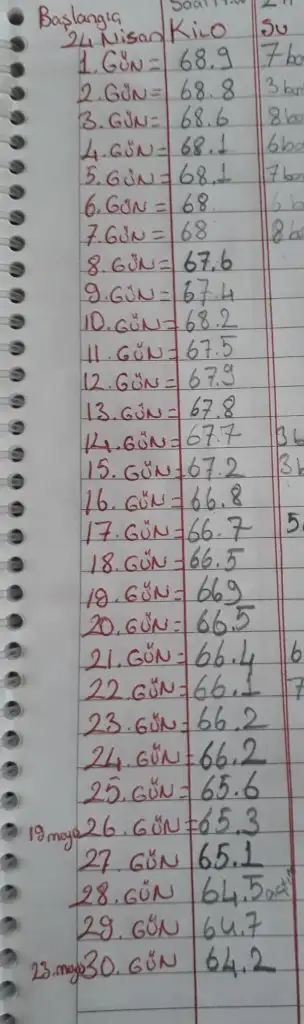 Başlangıç
24 Nisan Kilo Su
1. GÜN = 68.9 7
2. GÜN = 68.8 3
3. GÜN = 68.6 8
4. GÜN = 68.1 6
5. GÜN = 68.1 7
6. GÜN = 68
7. GÜN = 68 8
8. GÜN = 67.6
9. GÜN = 67.4
10. GÜN = 68.2
11. GÜN = 67.5
12. GÜN = 67.9
13. GÜN = 67.8
14. GÜN = 67.7 3
15. GÜN = 67.2 3
16. GÜN = 66.8
17. GÜN = 66.7 5
18. GÜN = 66.5
19. GÜN = 669
20. GÜN = 66.5
21. GÜN = 66.4 6
22. GÜN = 66.1 7
23. GÜN = 66.2
24. GÜN = 66.2
25. GÜN = 65.6
19 mayıs 26. GÜN = 65.3
27. GÜN 65.1
28. GÜN 64.5
29. GÜN 64.7
23. mayıs 30. GÜN 64.2